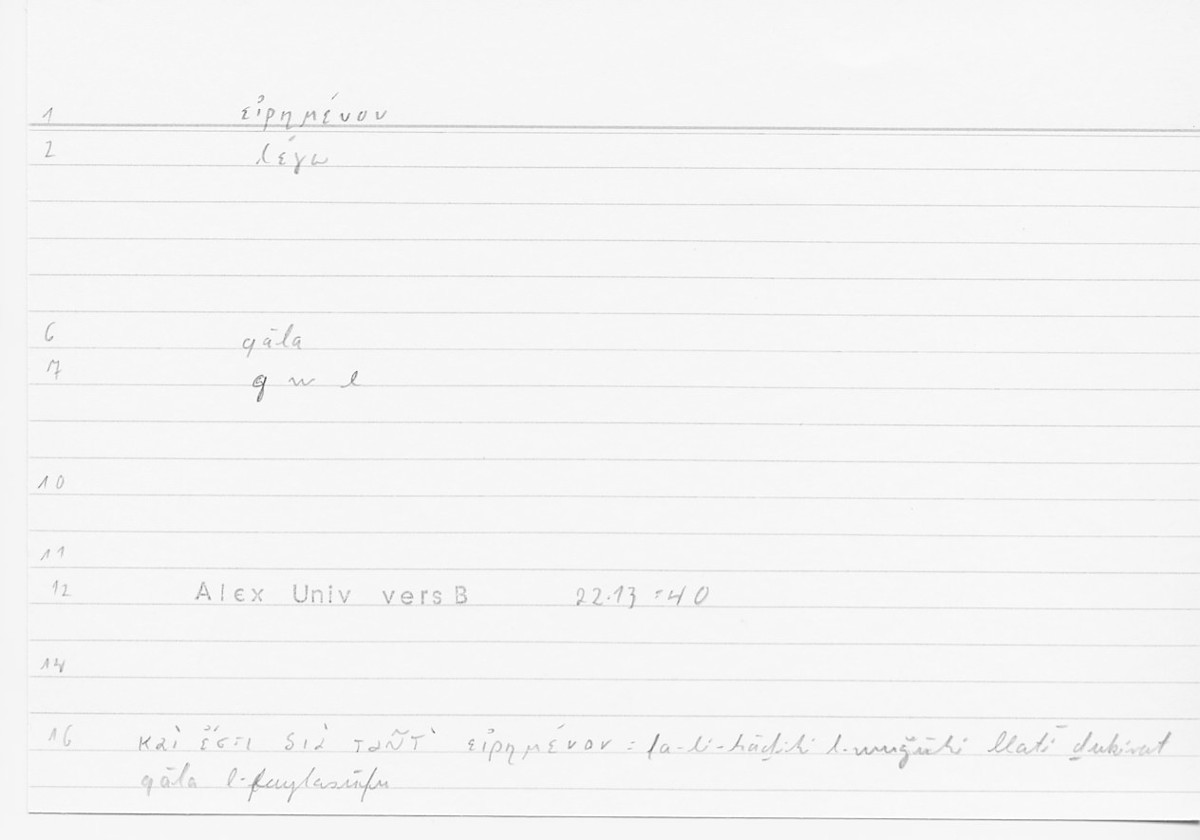 1 εἰρημένον
2 λέγω
6 qāla
7 q w l
10
11
12 Alex Univ vers B 22.13 = 40
14
16 καὶ ἔστι διὰ ταῦτ' εἰρημένον = fa-li-hāḏihi l-wuǧūhi llatī ḏukirat
qāla l-faylasūfu